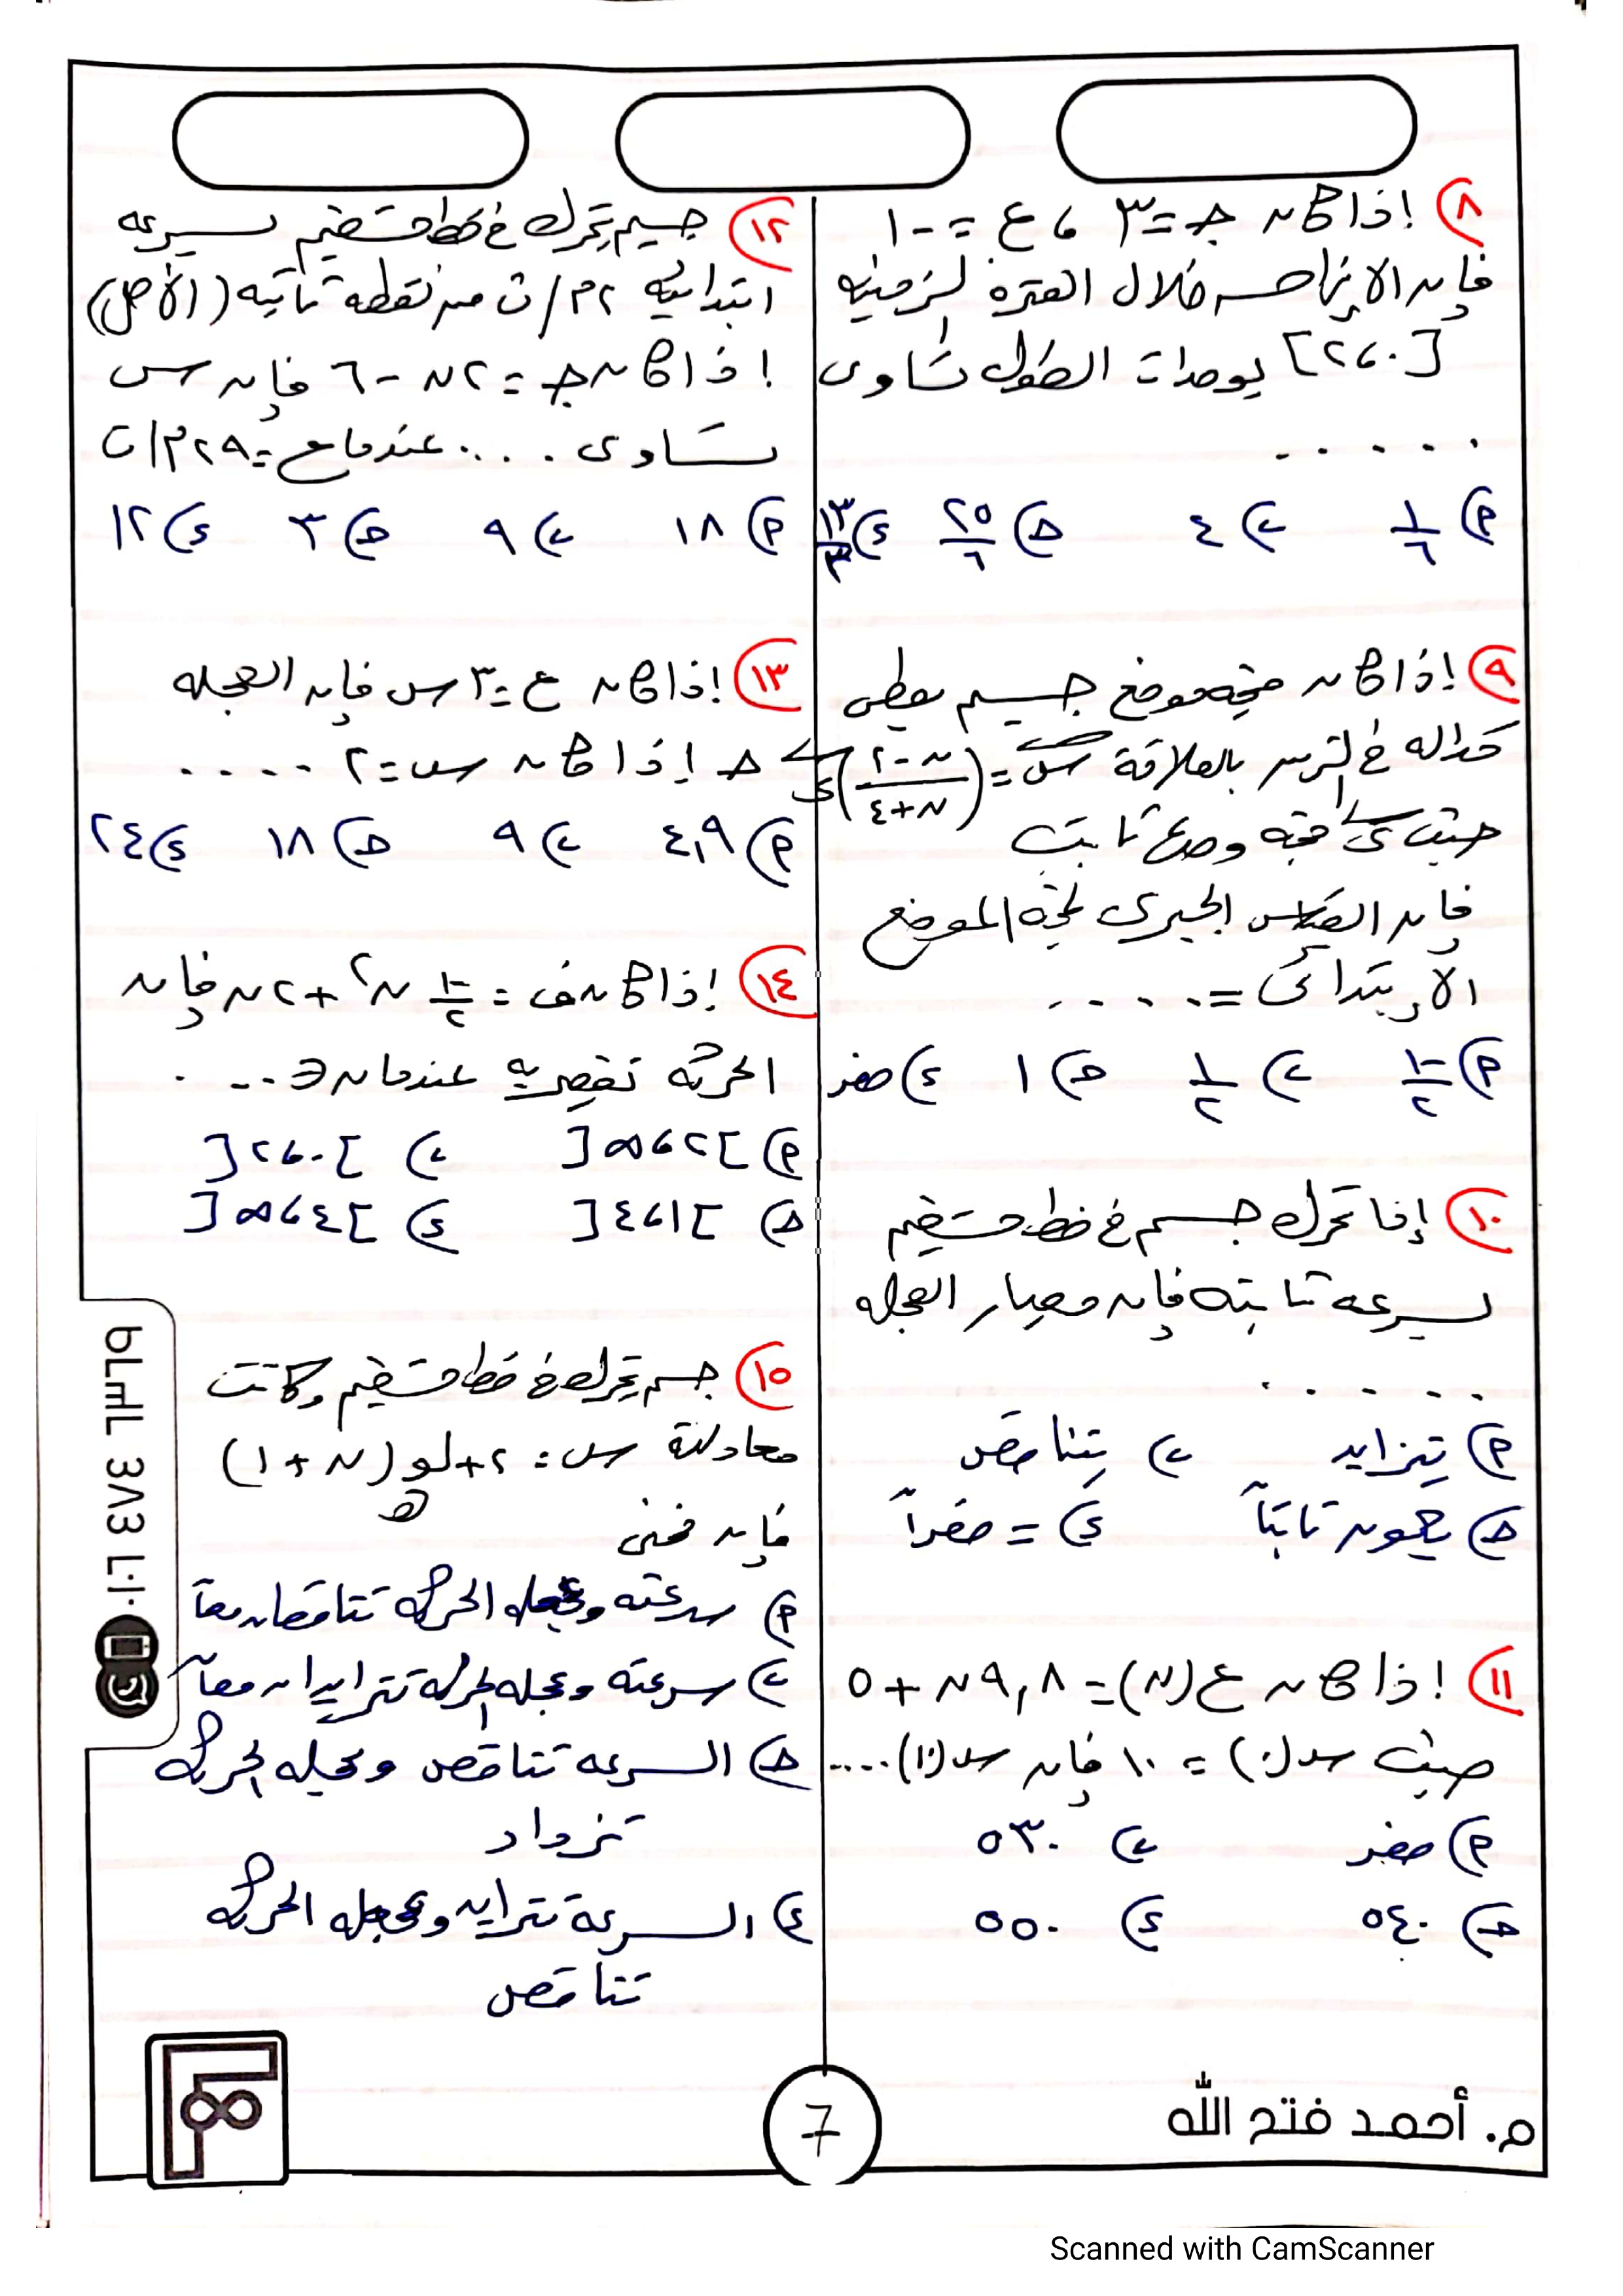 ٨) إذا كان جـ = ٣ ، ع. = -١
فإن الإزاحه خلال الفتره الزمنيه
[٠، ٢] بوحدات الطول تساوى
.....
أ) ١/٦ ب) ٤ ج) ٢٥/٦ د) ١٣/٣
٩) إذا كان متجه موضع جسيم يعطى
كداله فى الزمن بالعلاقة س = (ن-٢/ن+٤) ى
حيث ى متجه وحده ثابت
فإن القياس الجبرى لمتجه الموضع
الإبتدائى = ....
أ) -١/٢ ب) ١/٢ ج) ١ د) صفر
١٠) إذا تحرك جسم فى خط مستقيم
بسرعه ثابته فإن معيار العجله
.....
أ) يتزايد ب) يتناقص
ج) يكون ثابتاً د) = صفراً
١١) إذا كان ع(ن) = ٩,٨ ن + ٥
حيث س(٠) = ١٠ فإن س(١٠) ....
أ) صفر ب) ٥٣٠
ج) ٥٤٠ د) ٥٥٠
١٢) جسيم يتحرك فى خط مستقيم بسرعه
ابتدائيه ٢م/ث من نقطه ثابته (الأصل)
إذا كان جـ = ٢ن - ٦ فإن س
تساوى .... عندما ع = ٢٩م/ث
أ) ١٨ ب) ٩ ج) ٣ د) ١٢
١٣) إذا كان ع = ٣س فإن العجله
جـ إذا كان س = ٢ ....
أ) ٤,٩ ب) ٩ ج) ١٨ د) ٢٤
١٤) إذا كان ف = -١/٢ ن٢ + ٢ن فإن
الحركه تقصيريه عندما ن ∈ ....
أ) ]٢، ∞[ ب) ]٠، ٢[
ج) ]١، ٤[ د) ]٤، ∞[
١٥) جسم يتحرك فى خط مستقيم وكانت
معادلة س = ٢ + لو هـ (ن + ١)
فإن
أ) سرعته وعجله الحركه تتناقصان معاً
ب) سرعته وعجله الحركه تتزايدان معاً
ج) السرعه تتناقص وعجله الحركه
تزداد
د) السرعه تتزايد وعجله الحركه
تتناقص
٠١٠٦ ٤٨٤
7
م. أحمد فتح الله
Scanned with CamScanner